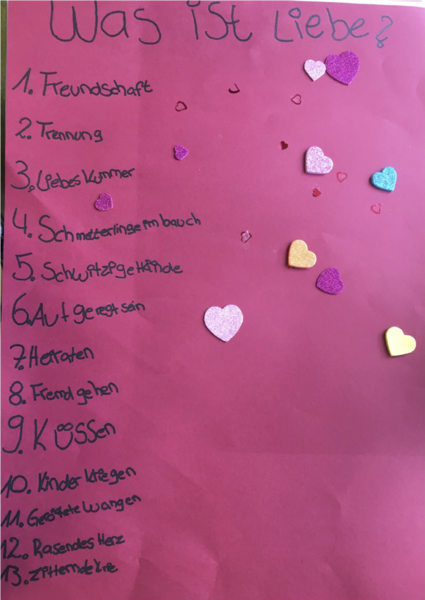 Was ist Liebe?
1. Freundschaft
2. Trennung
3. Liebes Kummer
4. Schmetterlinge im bauch
5. Schwitzige Hände
6. Aufgeregt sein
7. Heiraten
8. Fremd gehen
9. Küssen
10. Kinder kriegen
11. Gerötete Wangen
12. Rasendes Herz
13. Zitternde